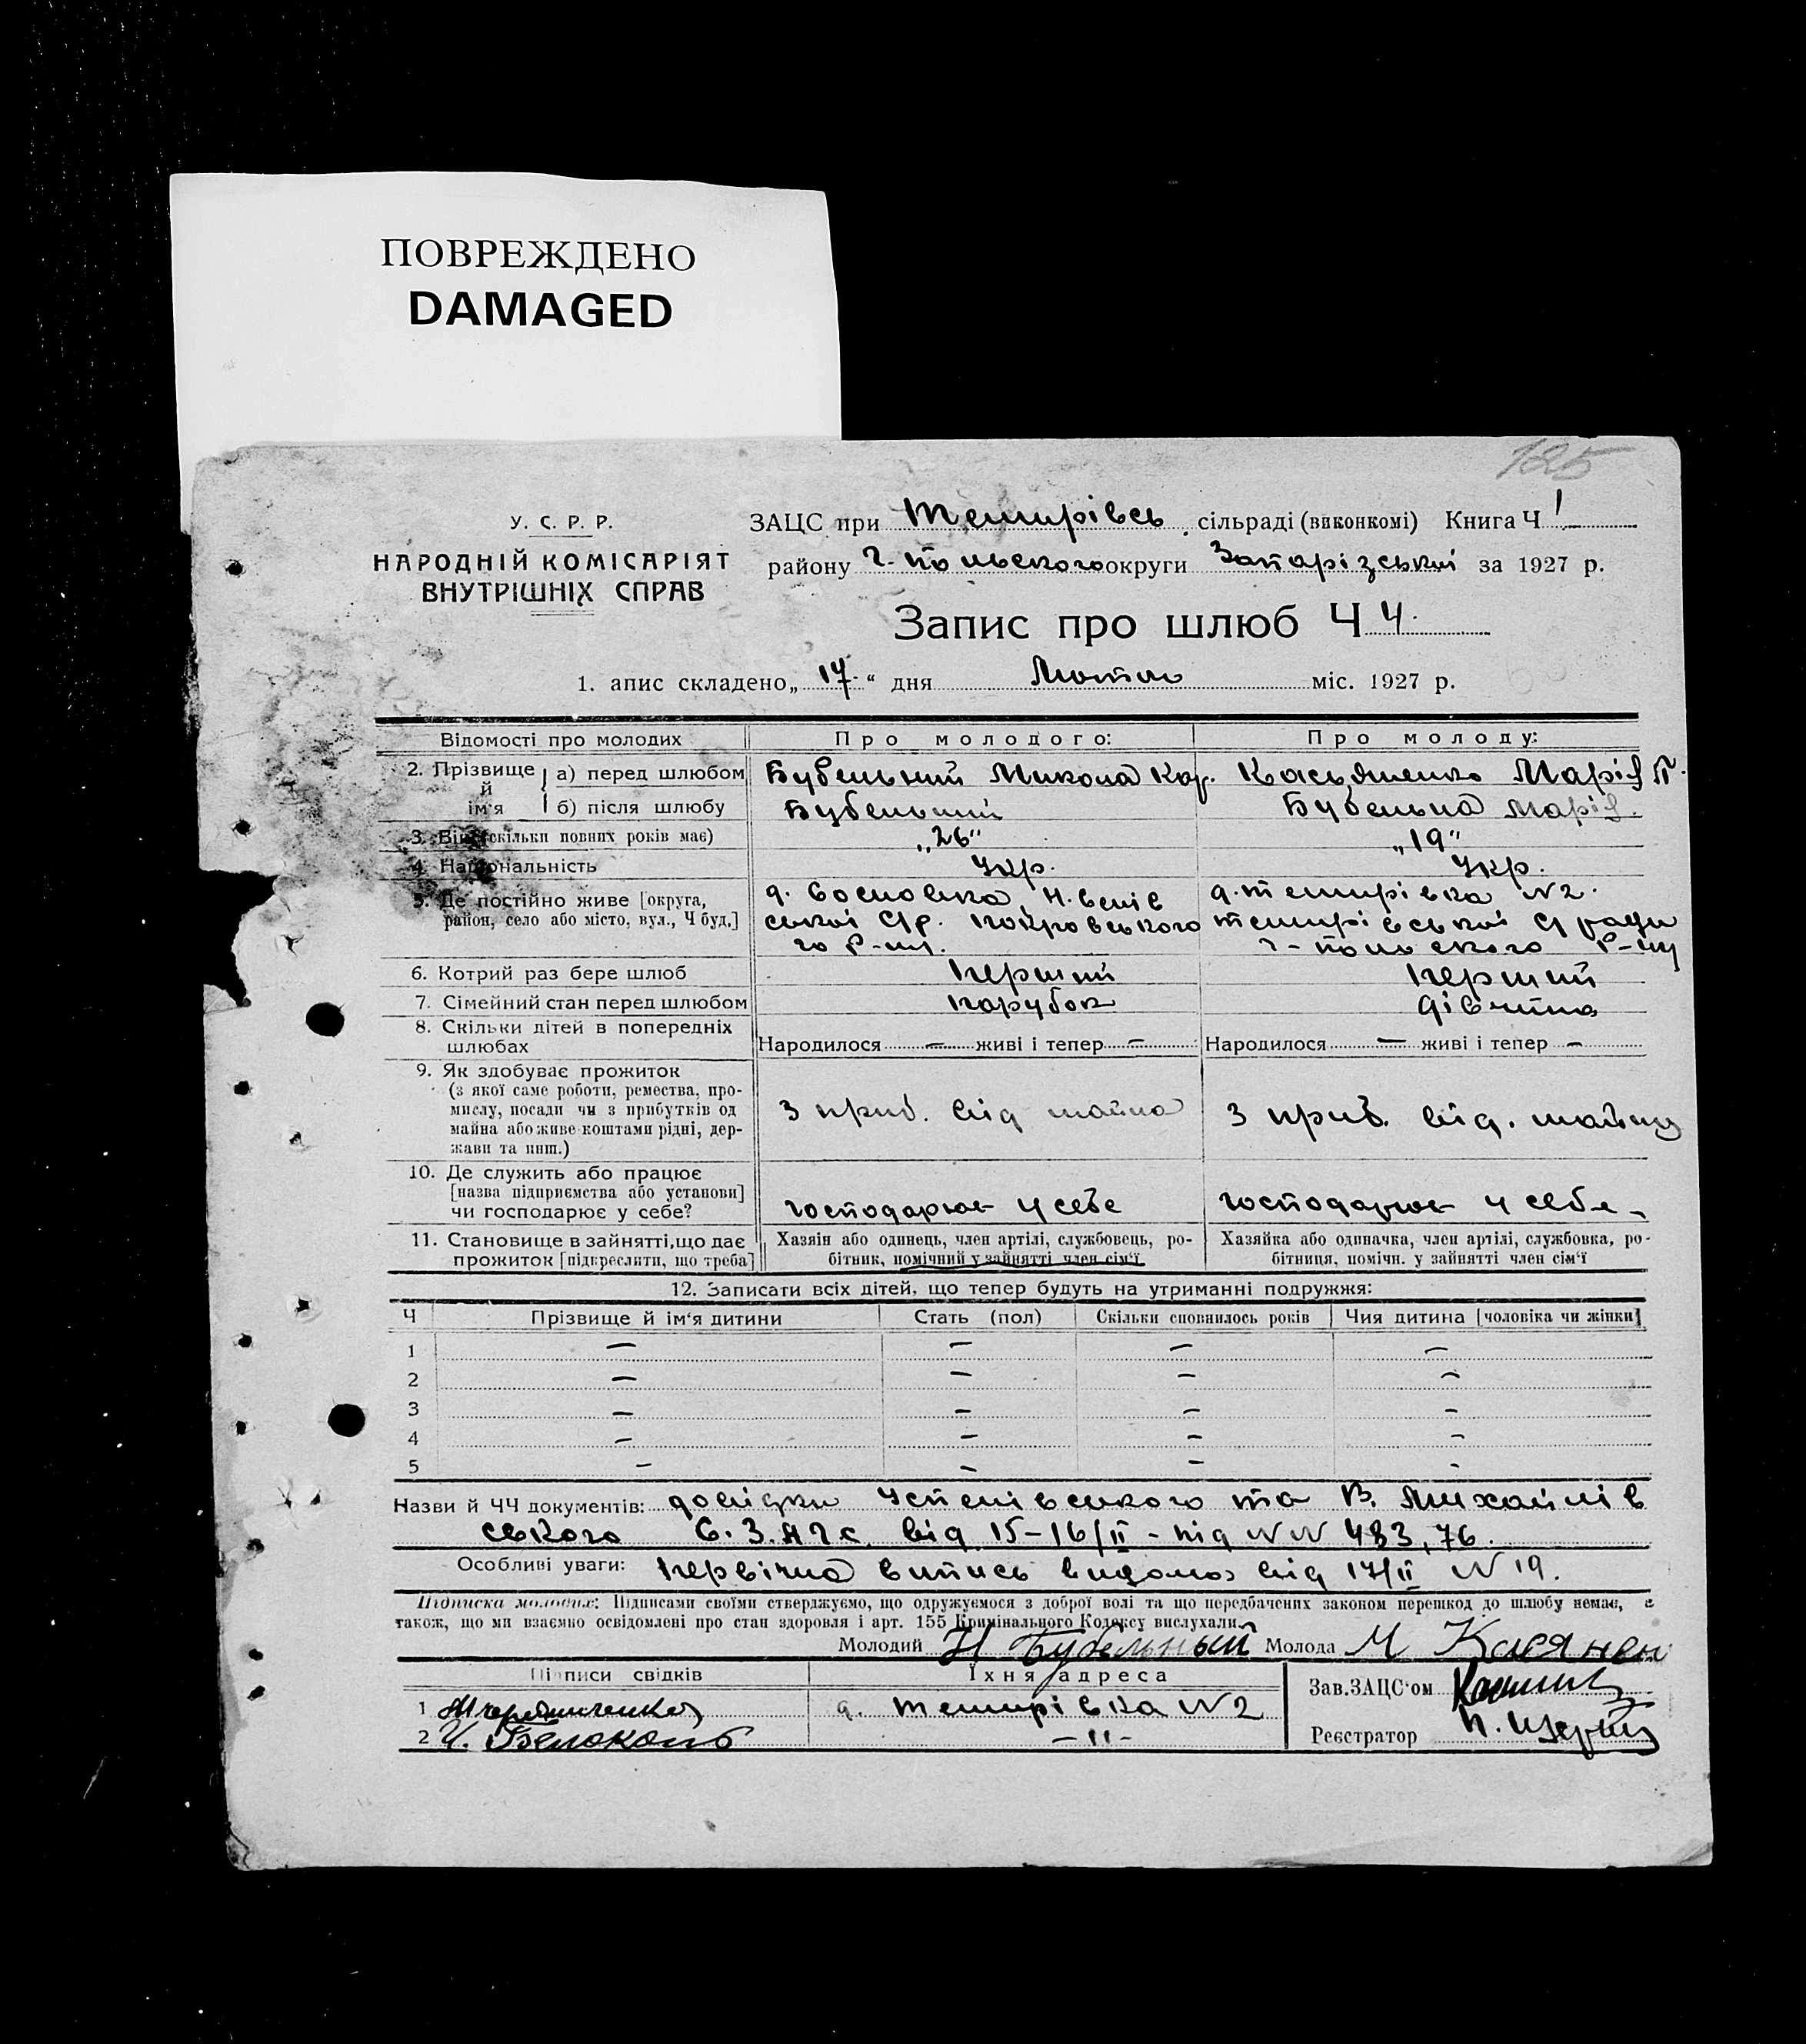 ПОВРЕЖДЕНО
DAMAGED
125
У. С. Р. Р.
НАРОДНІЙ КОМІСАРІЯТ
ВНУТРІШНІХ СПРАВ
ЗАЦС при Темирівсь. сільраді (виконкомі) Книга Ч 1
району Г-Польского округи Запорізської за 1927 р.
Запис про шлюб Ч 4.
1. апис складено „ 17 “ дня Лютого міс. 1927 р.
Відомості про молодих Про молодого: Про молоду:
2. Прізвище й ім'я
а) перед шлюбом Бубельний Микола Кор. Касьяненко Марія П.
б) після шлюбу Бубельний Бубельна Марія.
3. Вік (скільки повних років має) „26“ „19“
4. Національність Укр. Укр.
5. Де постійно живе [округа, район, село або місто, вул., Ч буд.]
д. Сосновка, Успенівської С/р. Покровського Р-ну.
д. Темирівка N2. Темирівської С/ради Г-Польского Р-ну
6. Котрий раз бере шлюб Перший Перший
7. Сімейний стан перед шлюбом Парубок Дівчина
8. Скільки дітей в попередніх шлюбах
Народилося — живі і тепер — Народилося — живі і тепер —
9. Як здобуває прожиток
(з якої саме роботи, ремества, про-
мислу, посади чи з прибутків од
майна або живе коштами рідні, дер-
жави та инш.)
З приб. від майна З приб. від. майна
10. Де служить або працює
[назва підприємства або установи]
чи господарює у себе?
господарює у себе господарює у себе
11. Становище в зайнятті, що дає
прожиток [підкреслити, що треба]
Хазяін або одинець, член артілі, службовець, ро-
бітник, помічний у зайнятті член сім‘ї
Хазяйка або одиначка, член артілі, службовка, ро-
бітниця, помічн. у зайнятті член сім‘ї
12. Записати всіх дітей, що тепер будуть на утриманні подружжя:
Ч Прізвище й ім‘я дитини Стать (пол) Скільки сповнилось років Чия дитина [чоловіка чи жінки]
1 — — — —
2 — — — —
3 — — — —
4 — — — —
5 — — — —
Назви й ЧЧ документів: довідки Успенівського та В. Михайлів
ського С. ЗАГС від 15-16/II - під NN 483, 76.
Особливі уваги: Первічна випись видана від 17/II N 19.
Підписка молодих: Підписами своїми стверджуємо, що одружуємося з доброї волі та що передбачених законом перешкод до шлюбу немає, а
також, що ми взаємно освідомлені про стан здоровля і арт. 155 Кримінального Кодексу вислухали.
Молодий Н Бубельный Молода М Касянен
Підписи свідків Їхня адреса
1 д. Темирівка N2
2 Белоконь — 11 —
Зав. ЗАЦС‘ом
Реєстратор